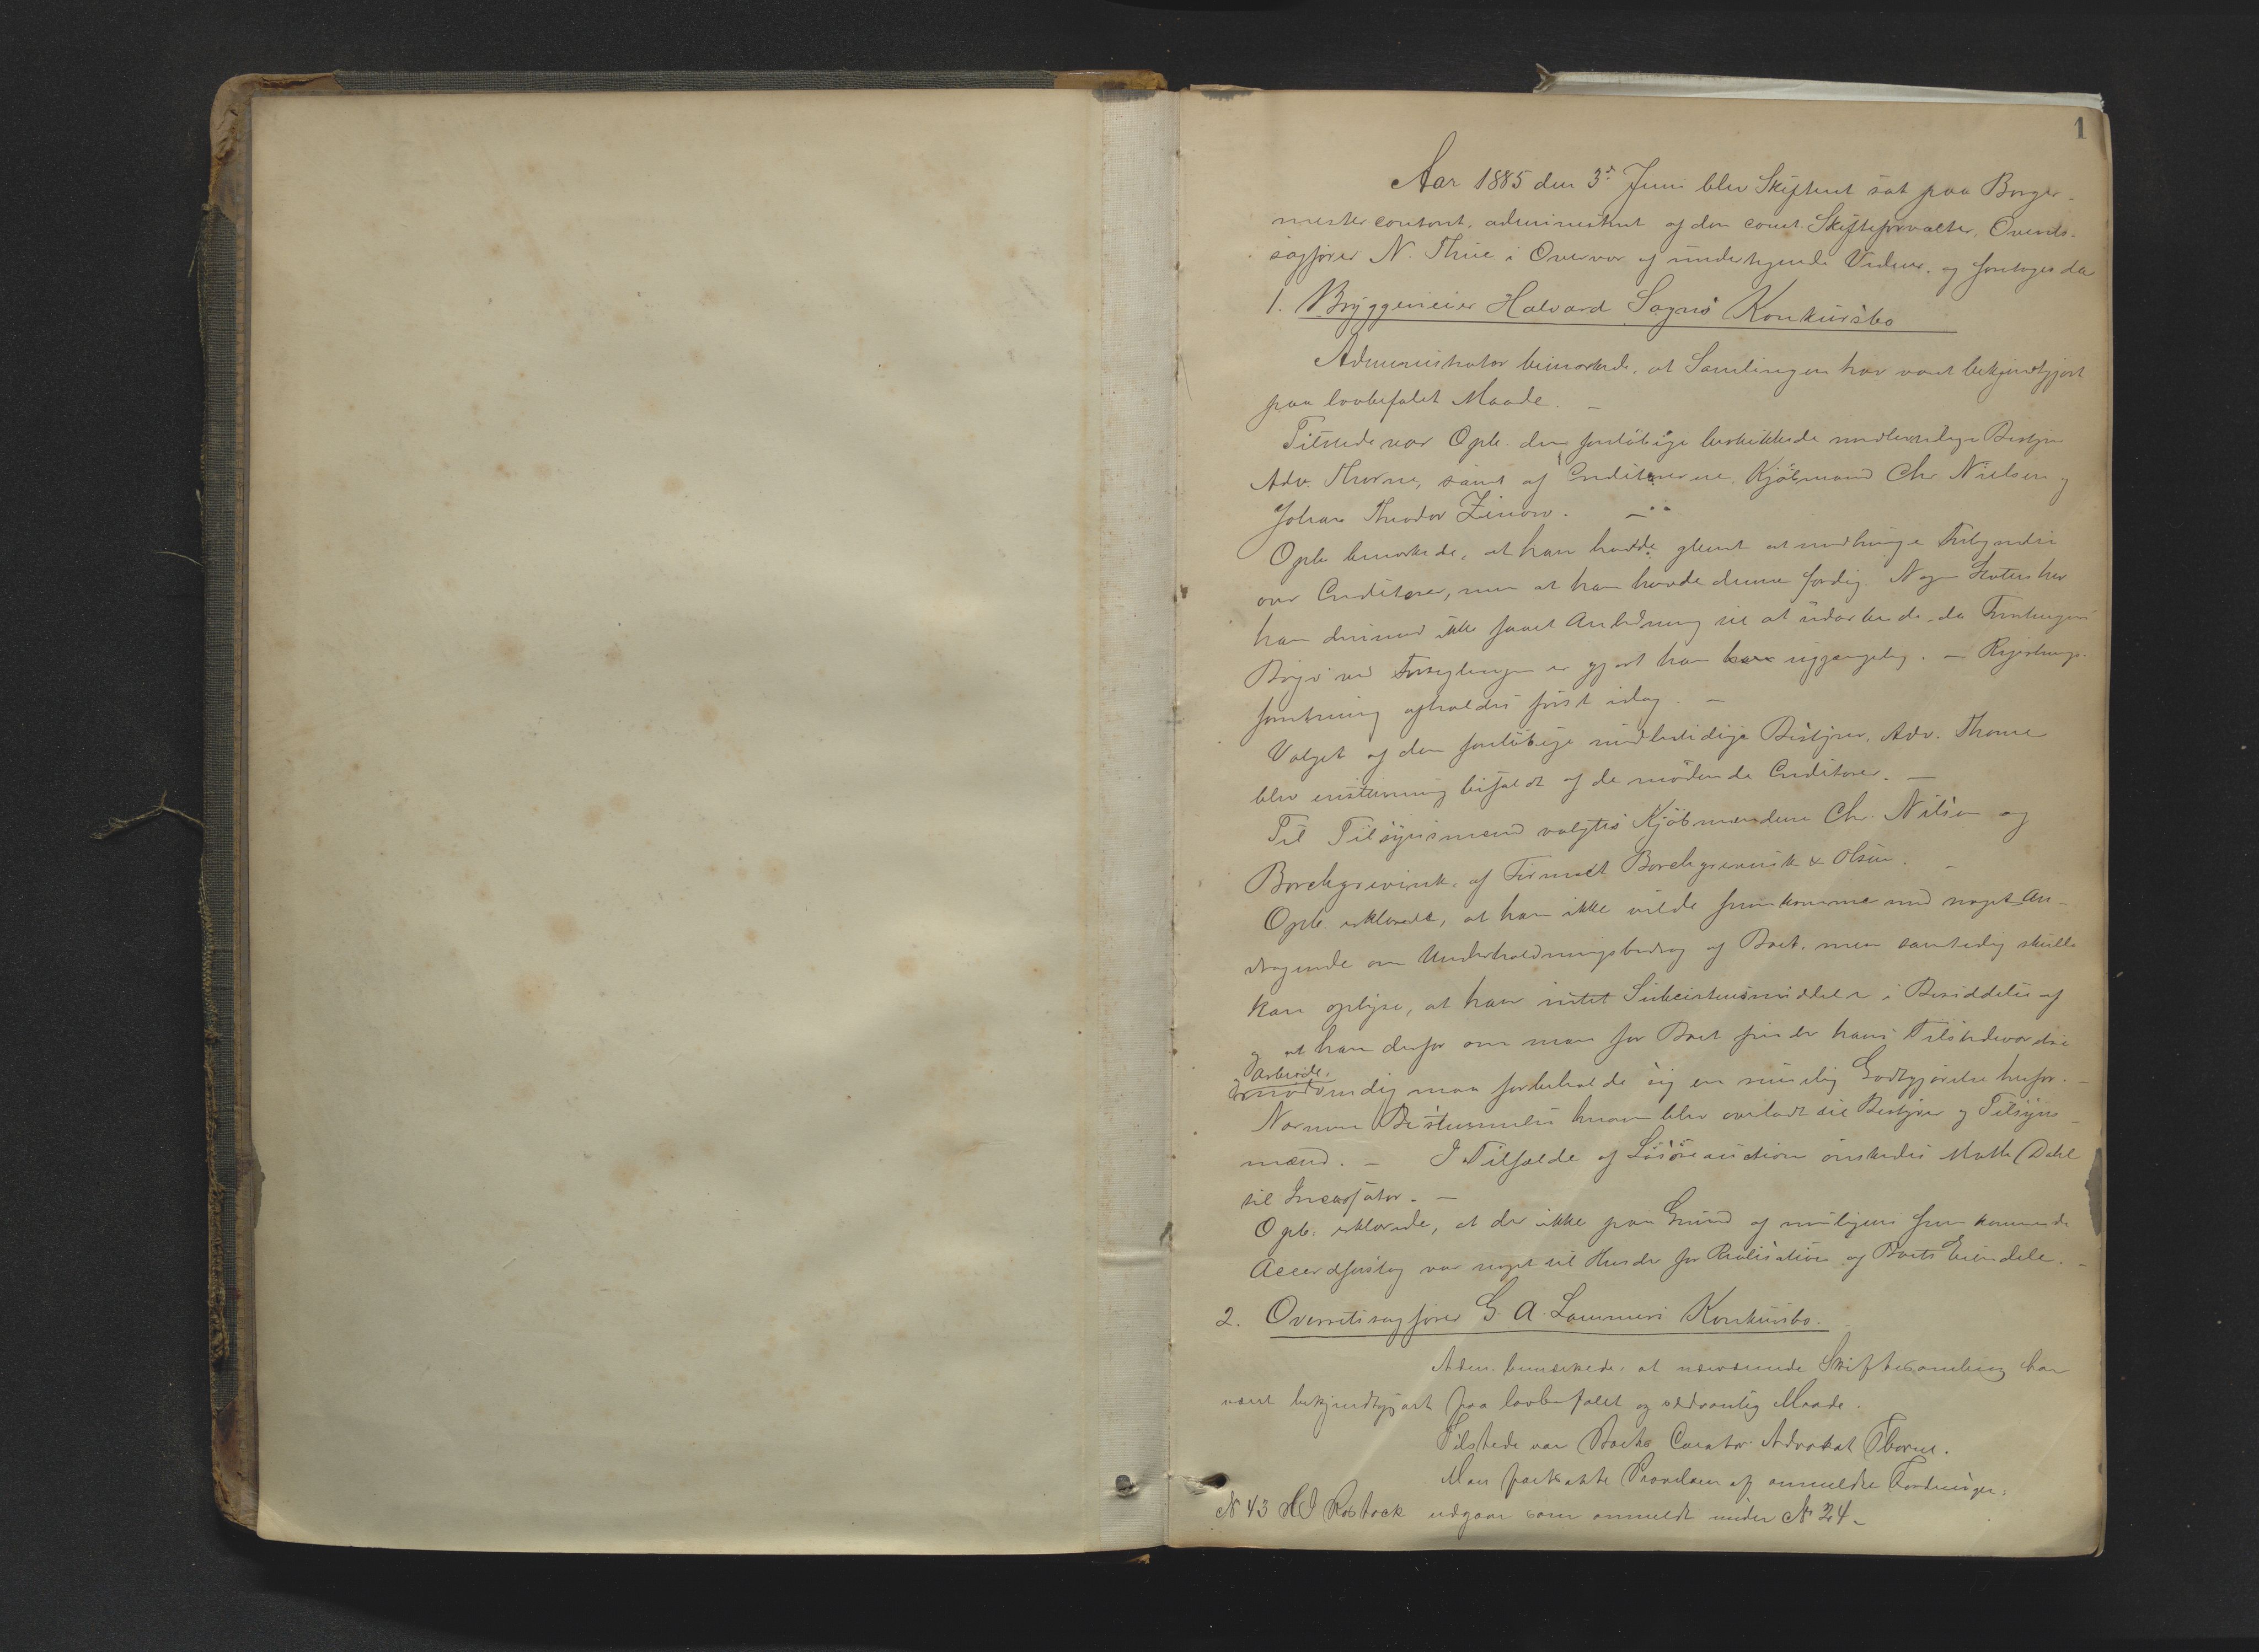 1
Aar 1885 den 3die Juni blev Skifteret sat paa Borger-
mestercontoret, administreret af den const. Skifteforvalter, Overrets-
sagfører N. Thiis i Overvær af undertegnede Vidner, og foretoges da
1. Bryggerieier Halvard Sogns Konkursbo
Administrator bemærkede, at Samlingen har været bekjendtgjort
paa lovbefalet Maade. –
Tilstede var Opb. den foreløbige beskikkede midlertidige Bestyrer
Adv. Thorne, samt af Creditorerne, Kjøbmand Chr Nielsen og
Johan Theodor Zinow. –
Opb. bemærkede, at han havde glemt at medbringe Fortegnelse
over Creditorer, men at han havde denne færdig. Nogen Status har
han derimod ikke faaet Anledning til at udarbeide, da Forretningens
Bøger ved Forseglingen er gjort ham utilgjængelig. – Registrerings-
forretning afholdes først idag. –
Valget af den foreløbige midlertidige Bestyrer, Adv. Thorne
blev enstemmig bifaldt af de mødende Creditorer. –
Til Tilsynsmænd valgtes Kjøbmændene Chr. Nilsen og
Borchgrevink, af Firmaet Borchgrevink & Olsen. –
Opb. erklærede, at han ikke vilde fremkomme med noget An-
dragende om Underholdningsbidrag af Boet, men samtidig skulle
han oplyse, at han intet Subsistensmiddel er i Besiddelse af
og at han derfor om man for Boet finder hans Tilstedeværelse
og Arbeide
nødvendig maa forbeholde sig en rimelig Godtgjørelse herfor. –
Nærmere Bestemmelse herom blev overladt til Bestyrer og Tilsyns-
mænd. – I Tilfælde af Løsøreauction ønskedes Mathi Dahl
til Incassator. –
Opb. erklærede, at der ikke paa Grund af muligens fremkommende
Accordforslag var noget til Hinder for Realisation af Boets Eiendele. –
2. Overretssagfører G. A. Lammers Konkursbo.
Adm. bemærkede, at nærværende Skiftesamling har
været bekjendtgjort paa lovbefalet og sedvanlig Maade.
Tilstede var Boets Curator Advokat Thorne.
Man fortsatte Prøvelsen af anmeldte Fordringer:
№ 43 H J Rostock udgaar som anmeldt under № 24.